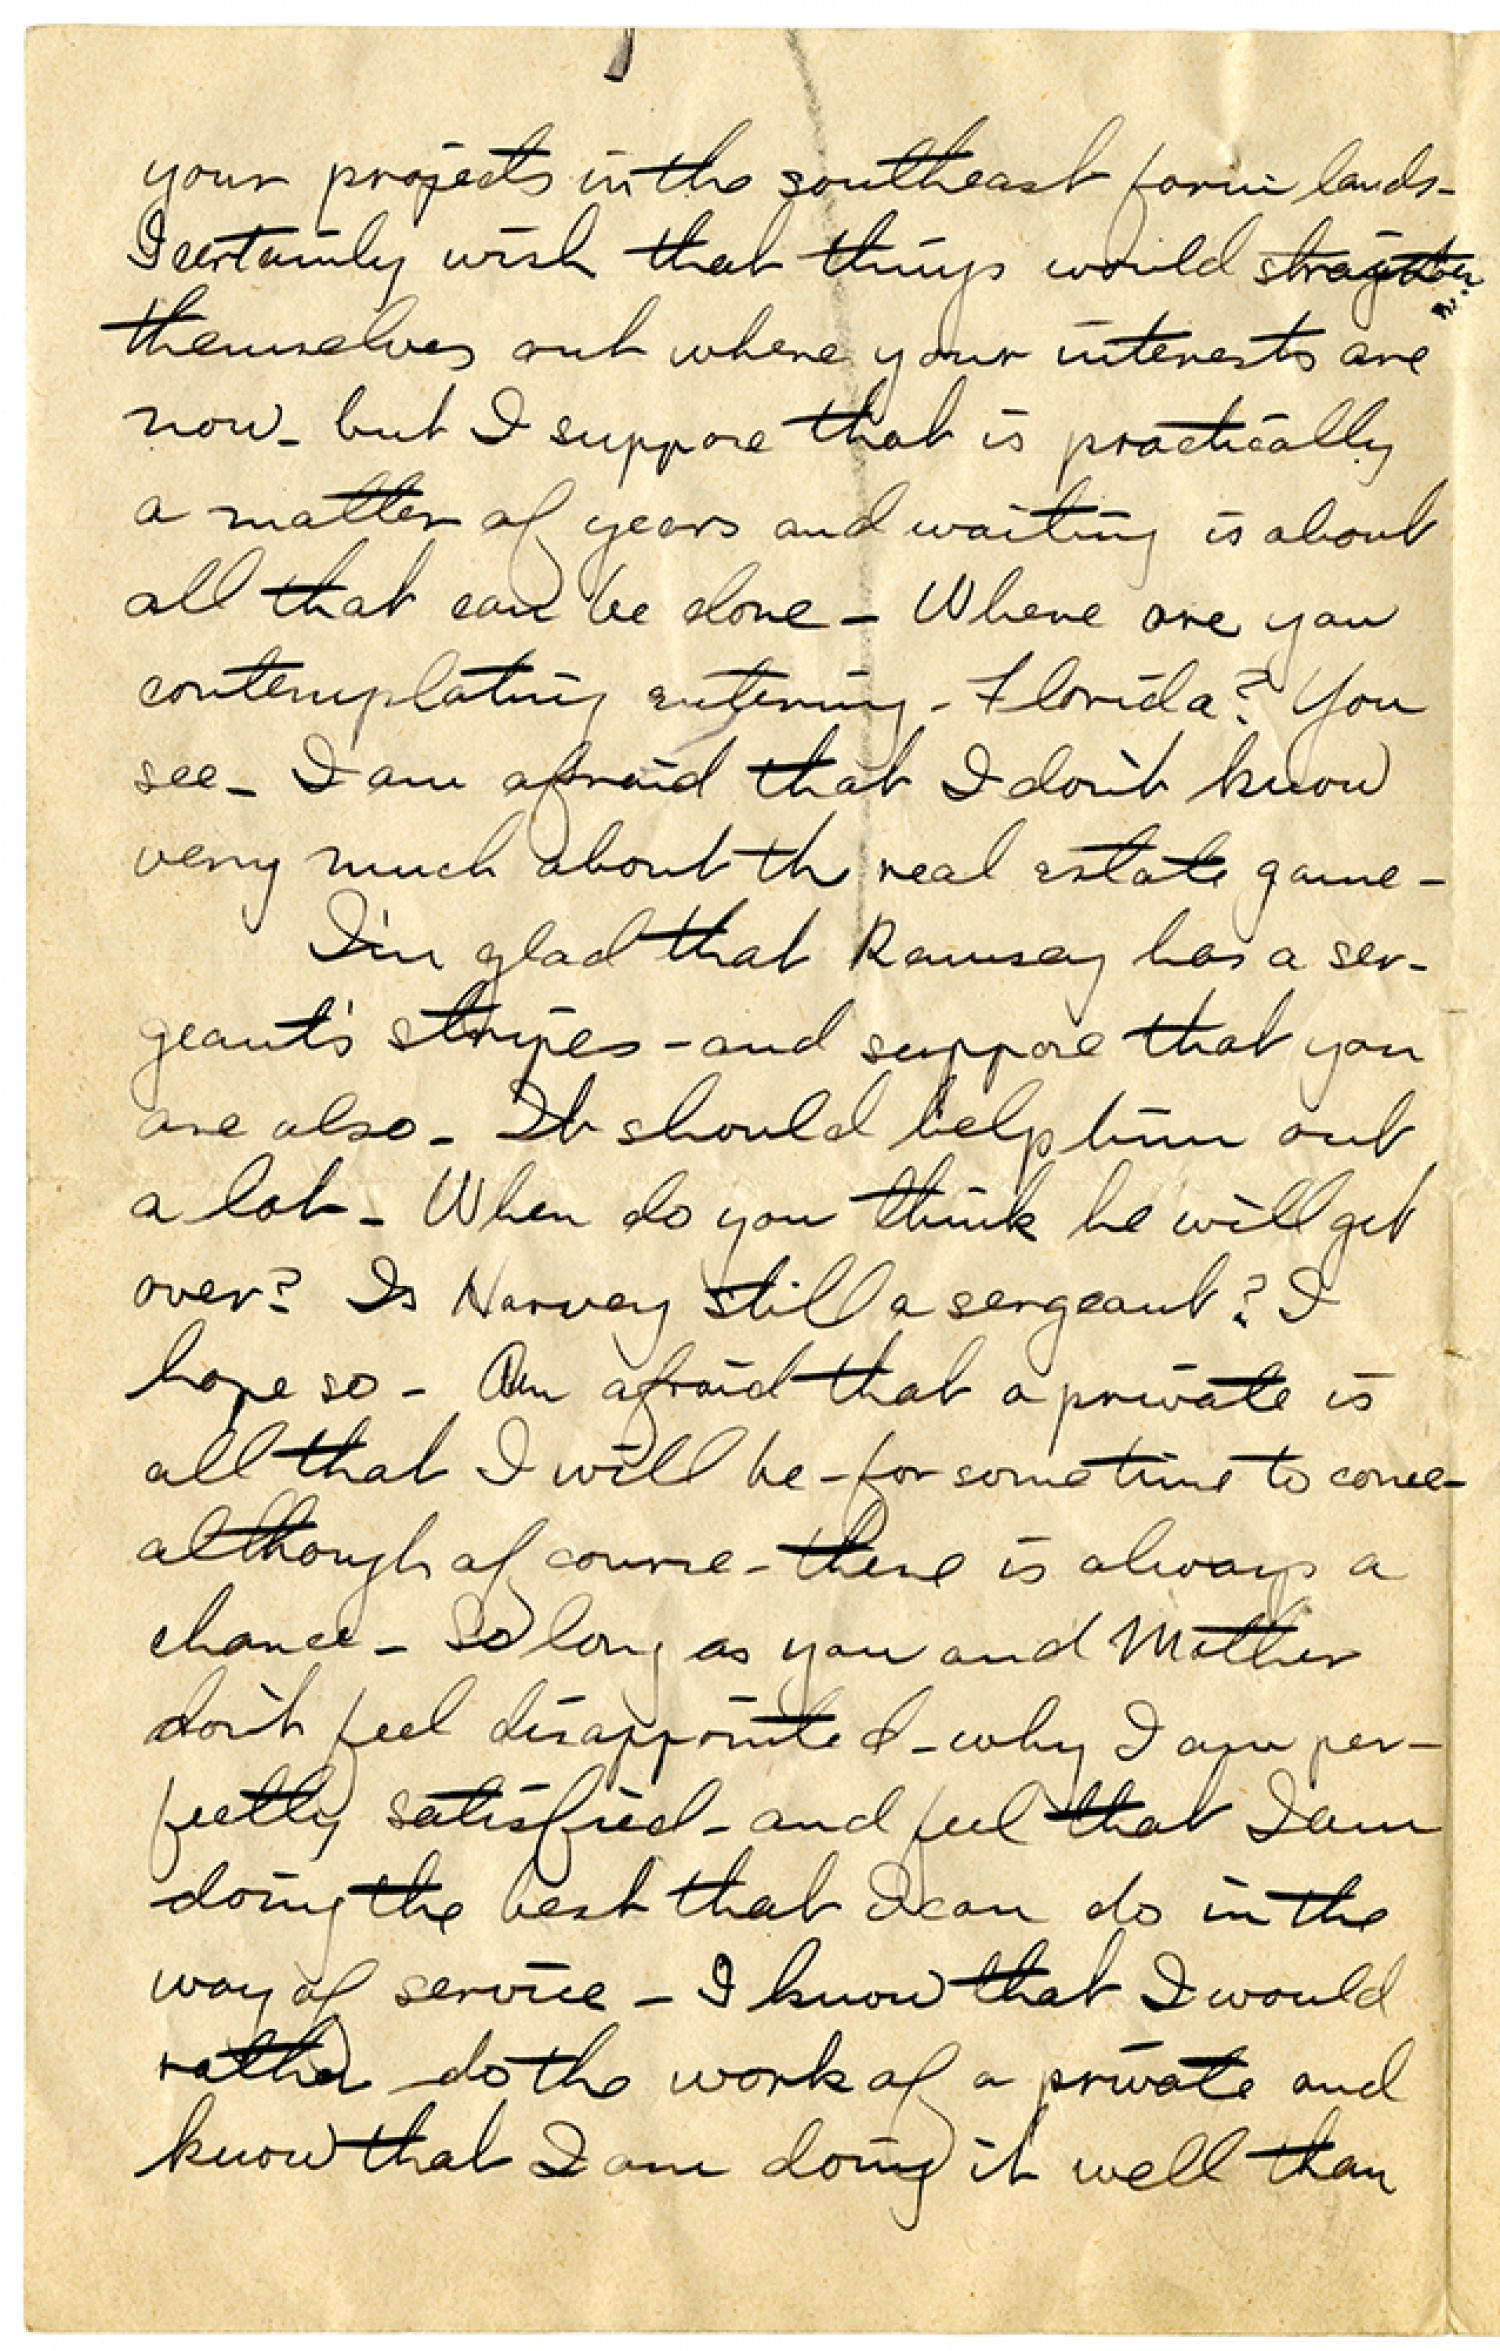 your projects in the southeast farm lands-
I certainly wish that things would straighten
themselves out where your interests are
now - but I suppose that is practically
a matter of years and waiting is about
all that can be done - Where are you
contemplating entering - Florida? You
see - I am afraid that I don't know
very much about th real estate game -
I'm glad that Ramsey has a ser-
geant's stripes - and suppose that you
are also - It should help him out
a lot - When do you think he will get
over? Is Harvey still a sergeant? I
hope so - Am afraid that a private is
all that I will be - for some time to come -
although of course - there is always a
chance - So long as you and Mother
don't feel disappointed - why I am per-
fectly satisfied - and feel that I am
doing the best that I can do in the
way of service - I know that I would
rather do the work of a private and
know that I am doing it well than